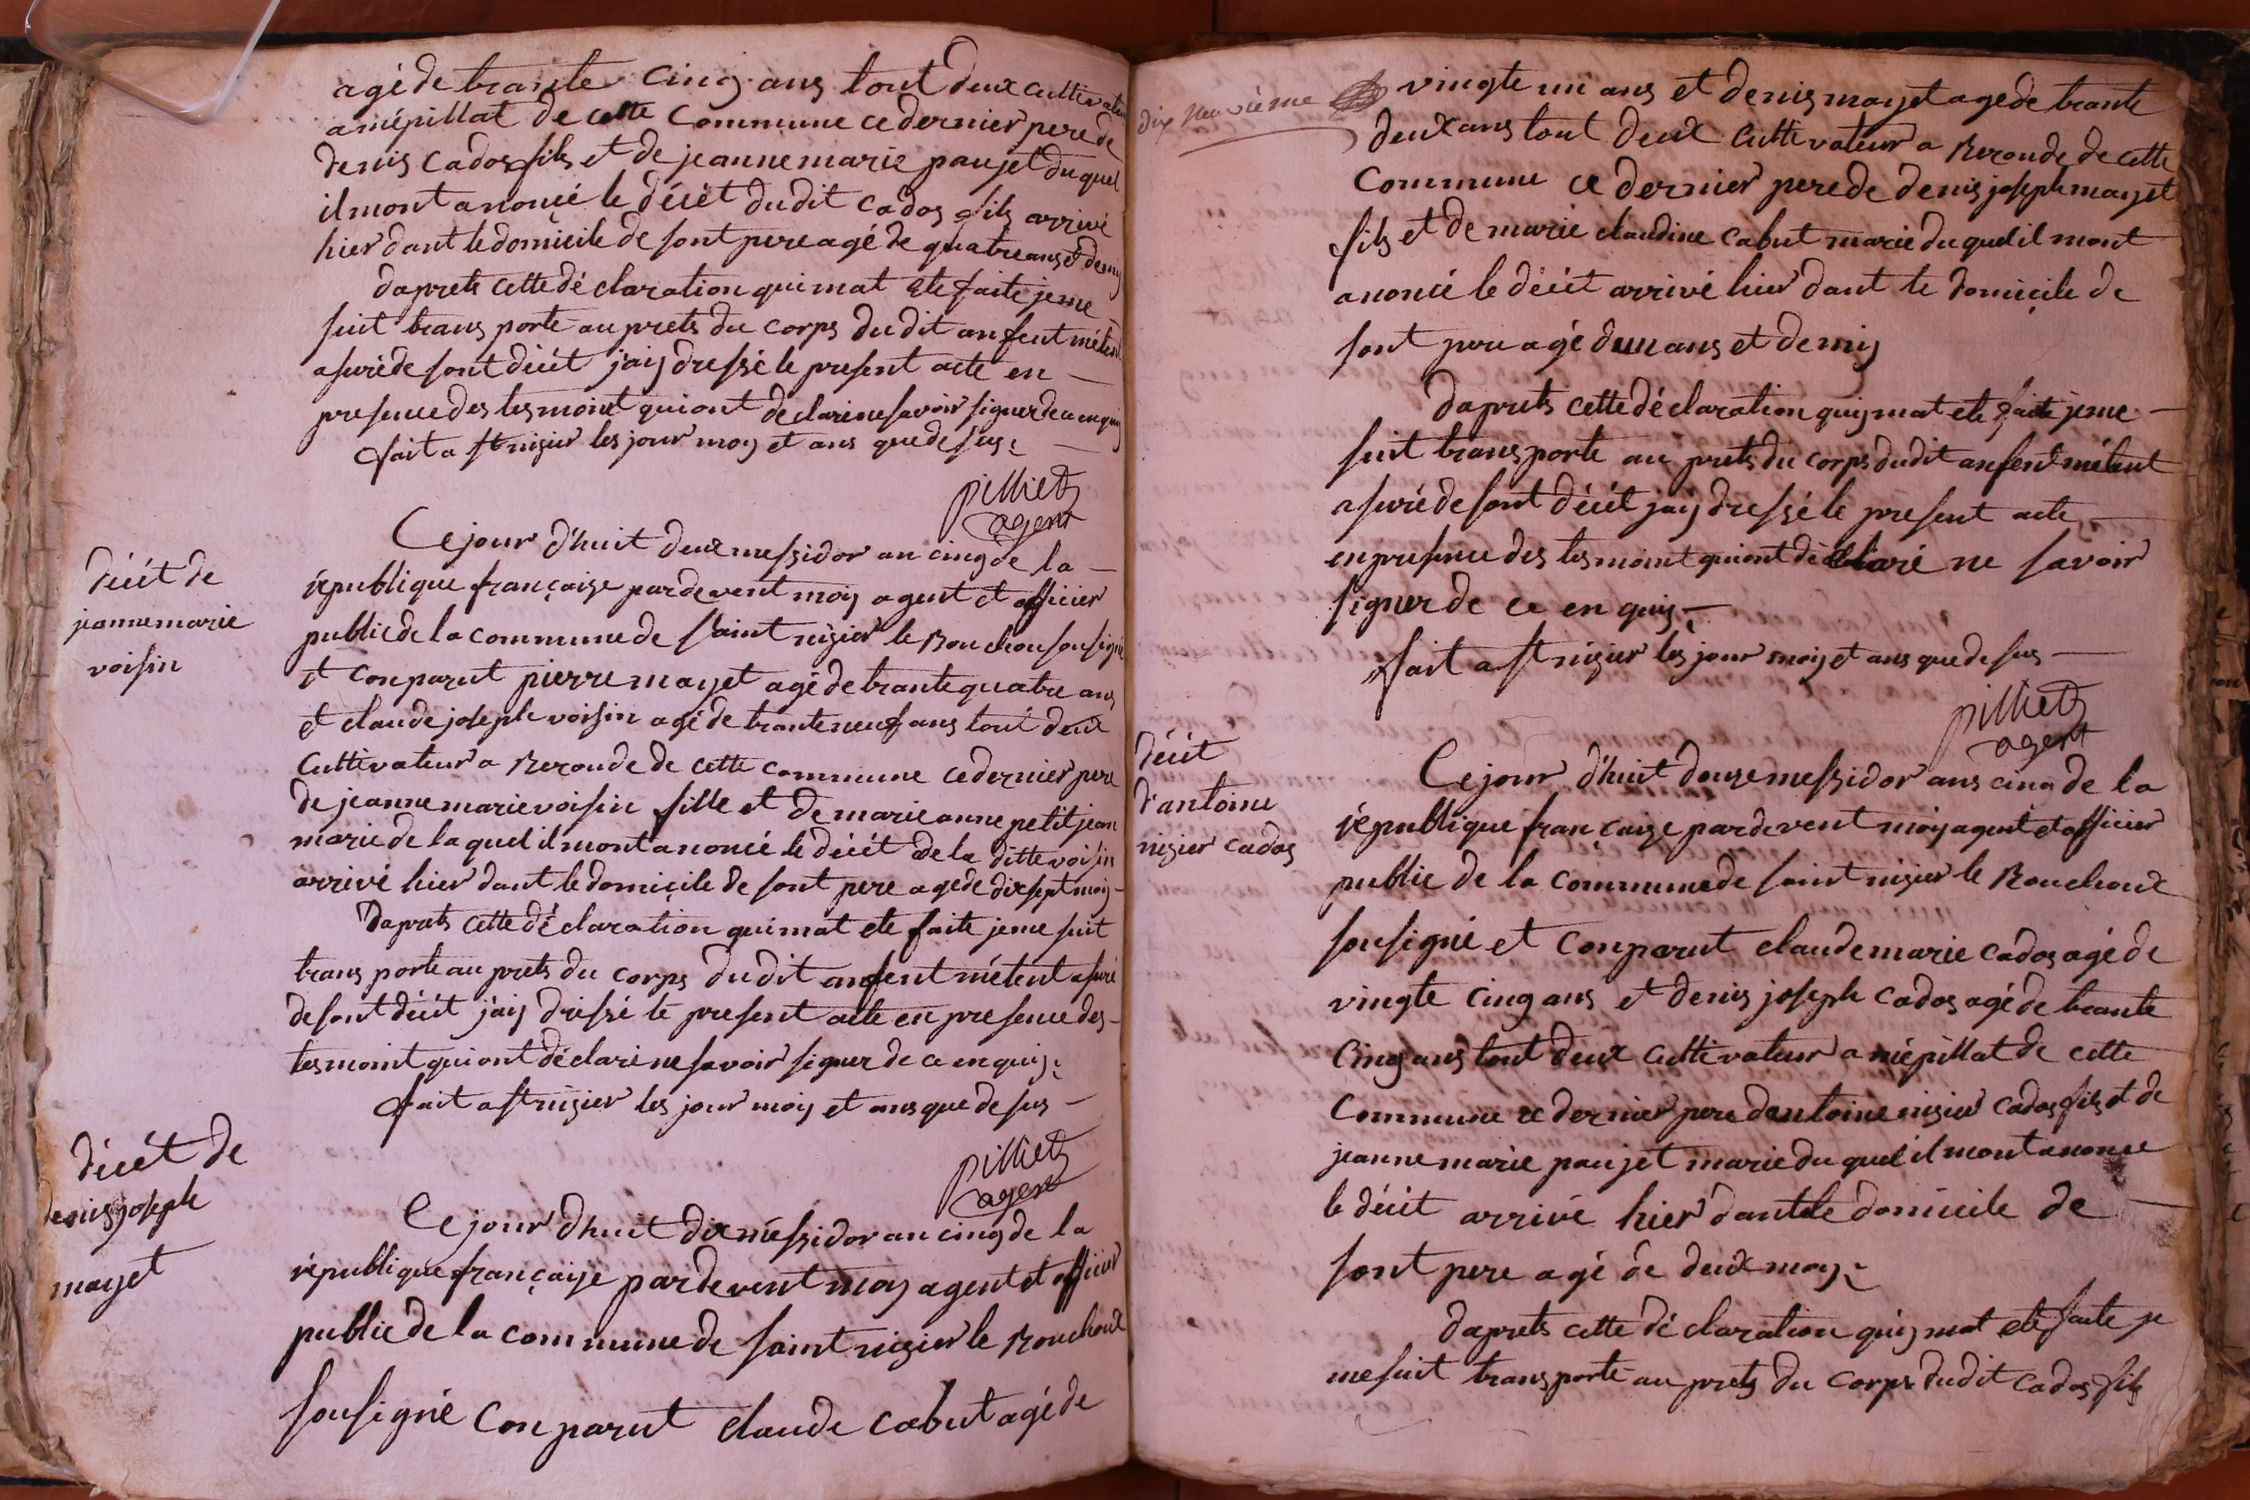 agé de trante cinq ans tout deux cultivateur
a mépillat de cette commune ce dernier pere de
denis cados fils et de jeanne marie paujet du quel
il mont anoncé le décét dudit cados fils arrivé
hier dant le domicile de sont pere agé de quatre ans et demy
daprets cette déclaration qui mat ete faite je me
suit transporté au prets du corps dudit anfent métent
asuré de sont décét jaij dressé le present acte en
presence des tesmoint qui ont declaré ne savoir signer de ce enquis
fait a st nizier les jour moy et ans que desus
pilliet
agent
décét de
jeanne marie
voisin
Ce jour d'huit deux messidor an cinq de la
république française pardevent moy agent et officier
public de la commune de saint nizier le Bouchou sousigné
et conparut pierre mayet agé de trante quatre ans
et claude joseph voisin agé de trante neuf ans tout deux
cultivateur a Beronde de cette commune ce dernier pere
de jeanne marie voisin fille et de marie anne petitjean
marié de la quel il mont anoncé le décét de la ditte voisin
arrivé hier dant le domicile de sont pere agé de dix sept moy
Daprets cette déclaration qui mat ete faite je me suit
transporte au prets du corps dudit anfent métent asuré
de sont décét jaij dressé le present acte en presence des
tesmoint qui ont déclaré ne savoir signer de ce enquis
fait a st nizier les jour moy et ans que desus
pilliet
agent
décét de
denis joseph
mayet
Ce jour d'huit dix méssidor an cinq de la
république française pardevent moy agent et officier
public de la commune de saint nizier le Bouchoux
sousigné conparut claude cabut agé de
dix neuvième
vingte un ans et denis mayet agé de trante
deux ans tout deux cultivateur a Beronde de cette
commune ce dernier pere de denis joseph mayet
fils et de marie claudine cabut marié du quel il mont
anoncé le décét arrivé hier dant le domicile de
sont pere agé dun ans et demij
daprets cette déclaration quij mat ete faite je me
suit transporte au prets du corps dudit anfent métent
asuré de sont décét jaij dressé le present acte
en presence des tesmoint qui ont déclaré ne savoir
signer de ce enquis
fait a st nizier les jour moy et ans que desus
pilliet
agent
décét
d'antoine
nizier cados
Ce jour d'huit douze messidor ans cinq de la
république française pardevent moy agent et officier
public de la commune de saint nizier le Bouchoux
sousigné et conparut claude marie cados agé de
vingte cinq ans et denis joseph cados agé de trante
cinq ans tout deux cultivateur a mépillat de cette
commune ce dernier pere dantoine nizier cados fils et de
jeanne marie paujet marié du quel il mont anonce
le décét arrivé hier dant le domicile de
sont pere agé de deux moy
daprets cette déclaration quij mat ete faite je
me suit transporté au prets du corps dudit cados fils